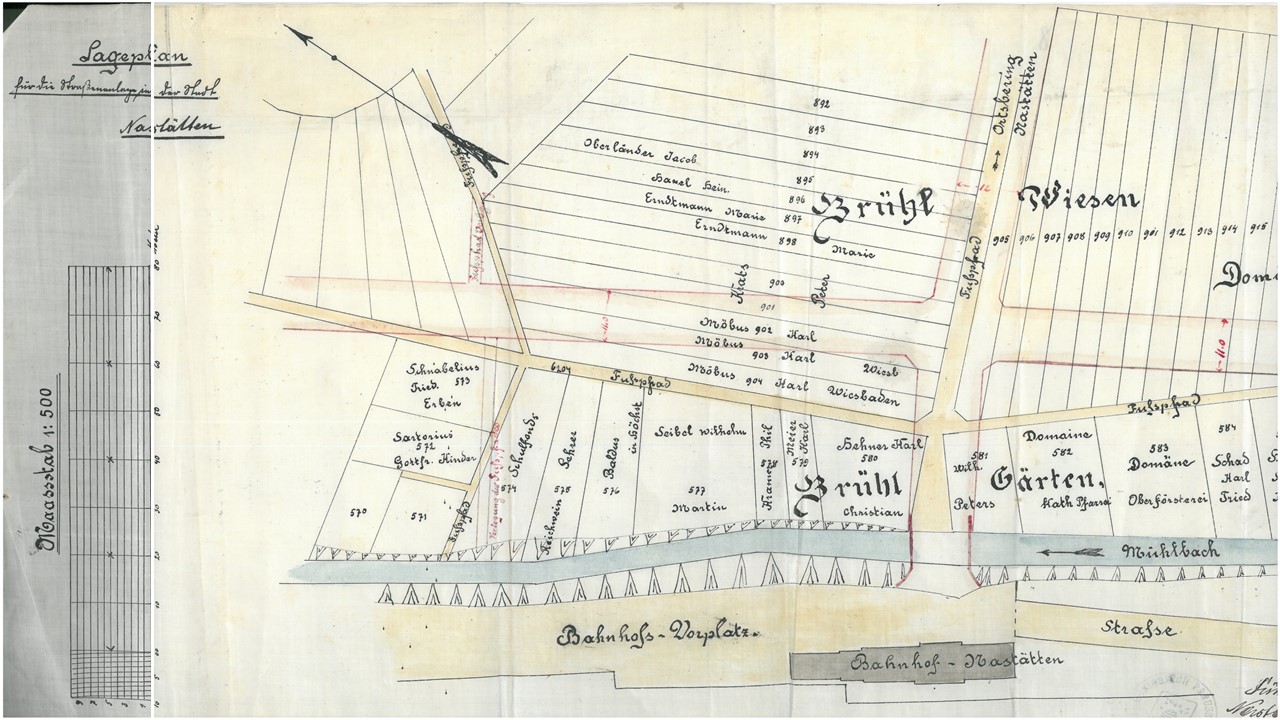 Lageplan
für die Straßenanlage in der Stadt
Nastätten
Maassstab 1:500
80
70
60
50
40
30
20
10
0
10
Ortsbering
Nastätten
892
893
894
Oberländer Jacob
895
Hein.
896
Erndtmann Marie 897
Erndtmann 898 Marie
Brühl
Wiesen
905 906 907 908 909 910 911 912 913 914 915
Fußpfad
Peter
900
901
Möbus 902 Karl
Möbus 903 Karl Wiesb
Möbus 904 Karl Wiesbaden
11.0
Fußpfad
Fußpfad
Schnabelius
Fried. 573
Erben
Sartorius
572
Gottfr. Kinder
570
571
Fußpfad
Schulfonds
574
Lehrer
575
Baldus
in Höchst
576
Seibel Wilhelm
577
Martin
Phil
578
Kramer
Meier
Karl
579
Hehner Karl
580
Christian
Brühl
Gärten.
581
Wilh.
Peters
Domaine
582
Kath Pfarrei
583
Domäne
Oberförsterei
584
Schad
Karl
Fried
Mühlbach
Bahnhofs-Vorplatz.
Strasse
Bahnhof-Nastätten